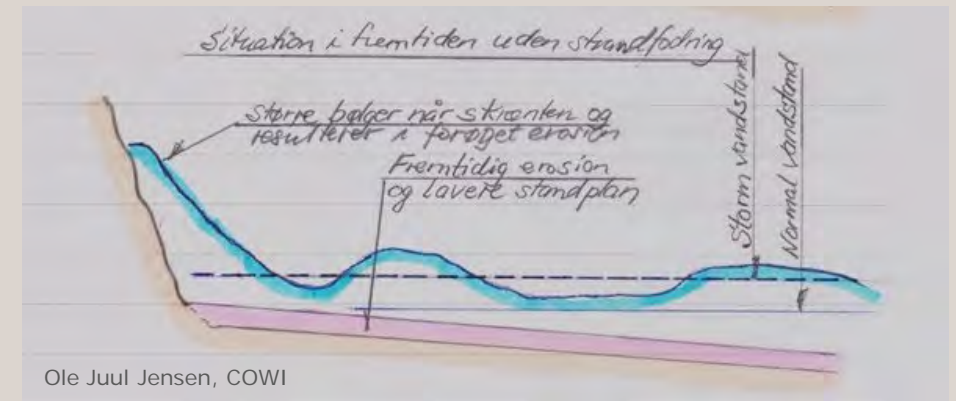 Situation i fremtiden uden strandfodring
Større bølger når skrænten og
resulterer i forøget erosion
Fremtidig erosion
og lavere standplan
Storm vandstand
Normal vandstand
Ole Juul Jensen, COWI